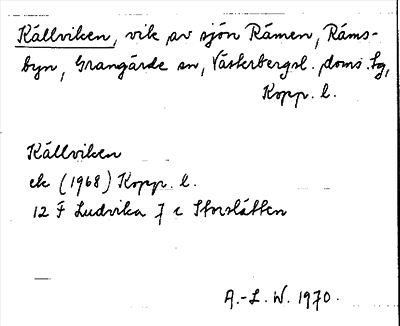 Källviken, vik av sjön Rämen, Räms-
byn, Grangärde sn, Västerbergsl. doms.sag,
Kopp. l.
Källviken
ek (1968) Kopp. l.
12 F Ludvika 7 c Storslätten
A.-L. W. 1970.